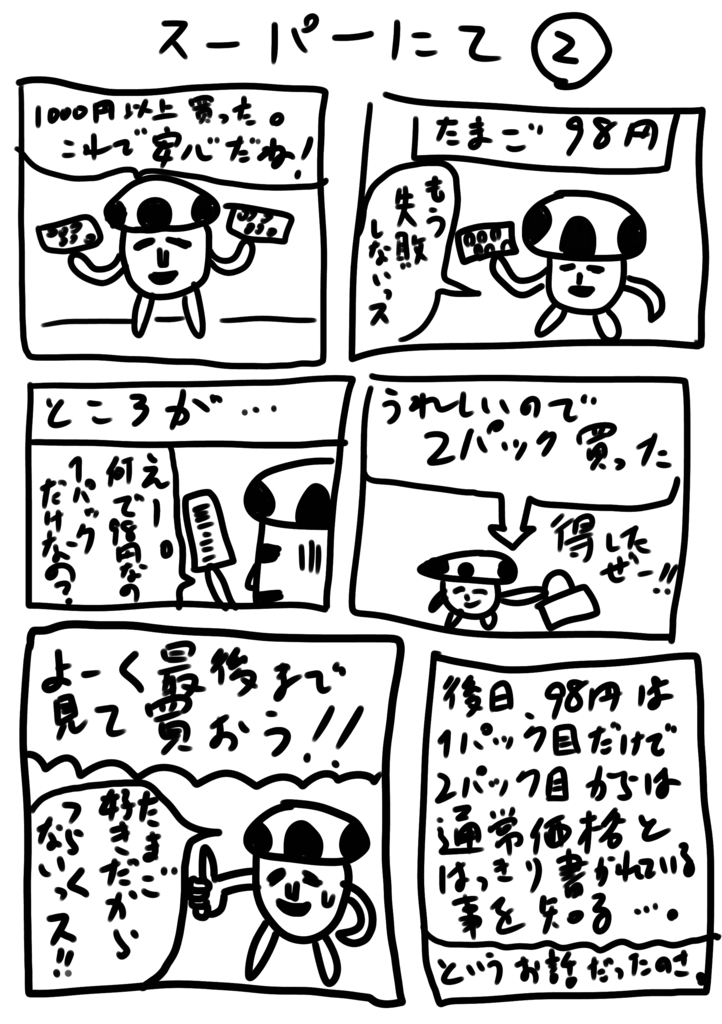 スーパーにて ②
たまご 98円
もう
失敗
しないっス
1000円以上 買った。
これで安心だね!
うれしいので
2パック 買った
得した
ぜー!!
ところが…
えー。
何で98円なの
1パック
だけなの?
後日、98円は
1パック目だけで
2パック目からは
通常価格と
はっきり書かれている
事を知る…。
というお話だったのさ。
よーく最後まで
見て買おう!!
たまご
好きだから
つらく
ないっス!!